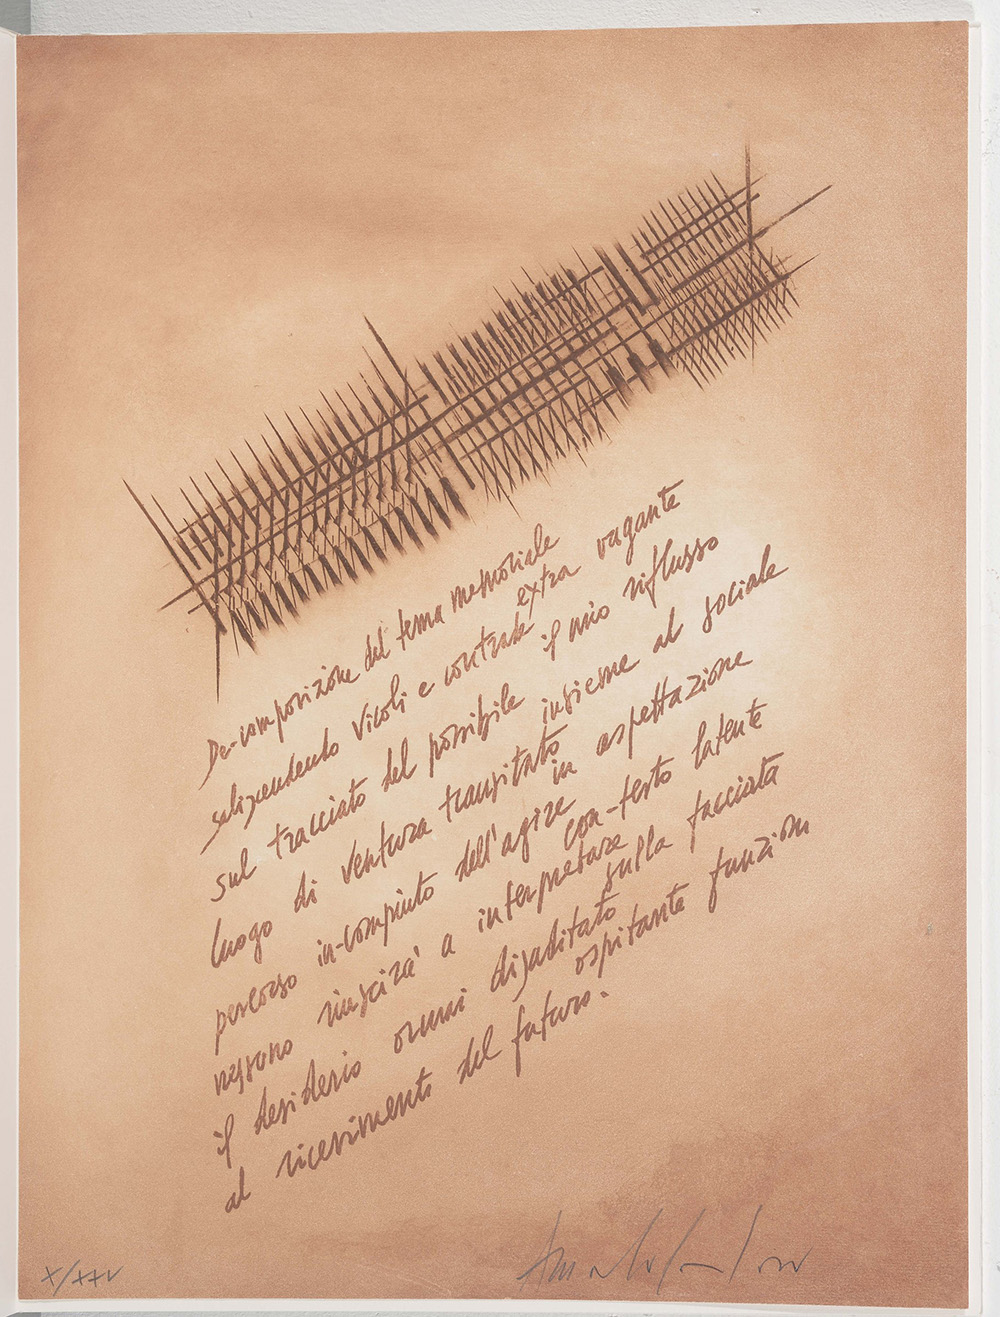 De-composizione del tema memoriale
selizendendo vicoli e contrade extra vagante
sul tracciato del possibile il mio riflusso
luogo di ventura transitato insieme al sociale
percorso in-compiuto dell'agire in aspettazione
nessuno riuscirà a interpretare con-testo latente
il desiderio ormai disabitato sulla facciata
al ricevimento del futuro. ospitante funzioni
X/XXV